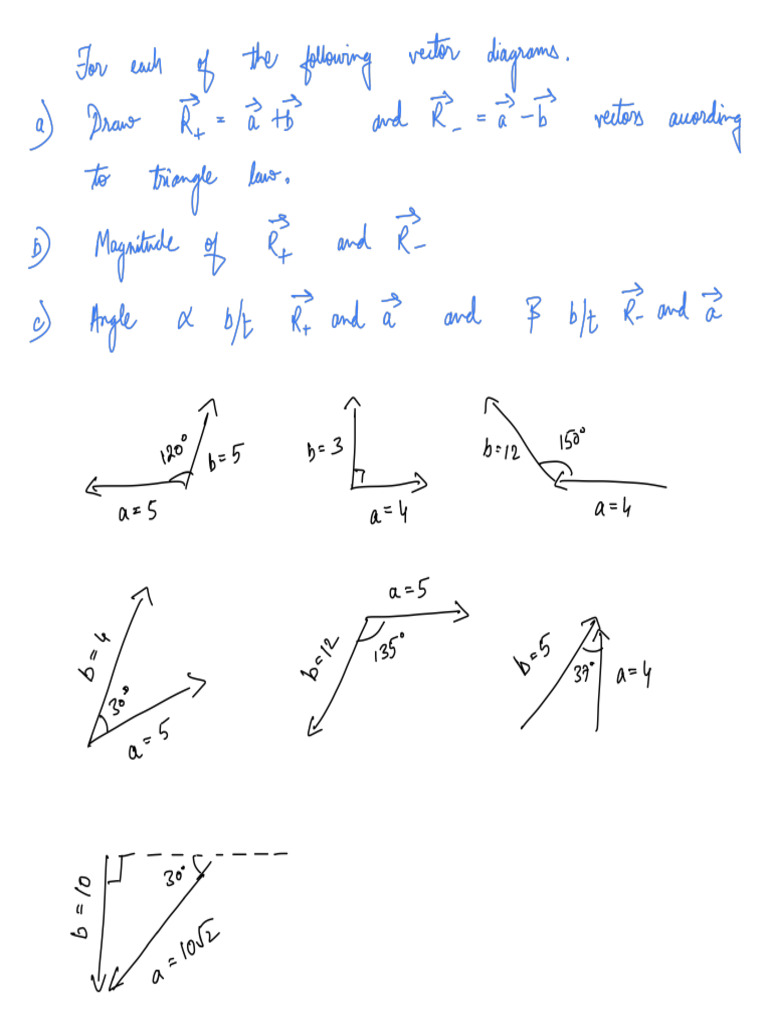 For each of the following vector diagrams.
a) Draw R⃗₊ = a⃗ + b⃗ and R⃗₋ = a⃗ - b⃗ vectors acording
to triangle law.
b) Magnitude of R⃗₊ and R⃗₋
c) Angle α b/t R⃗₊ and a⃗ and β b/t R⃗₋ and a⃗
120° b=5
a=5
b=3
a=4
b=12 150°
a=4
b=4
30°
a=5
a=5
b=12 135°
b=5
37° a=4
b=10
30°
a=10√2